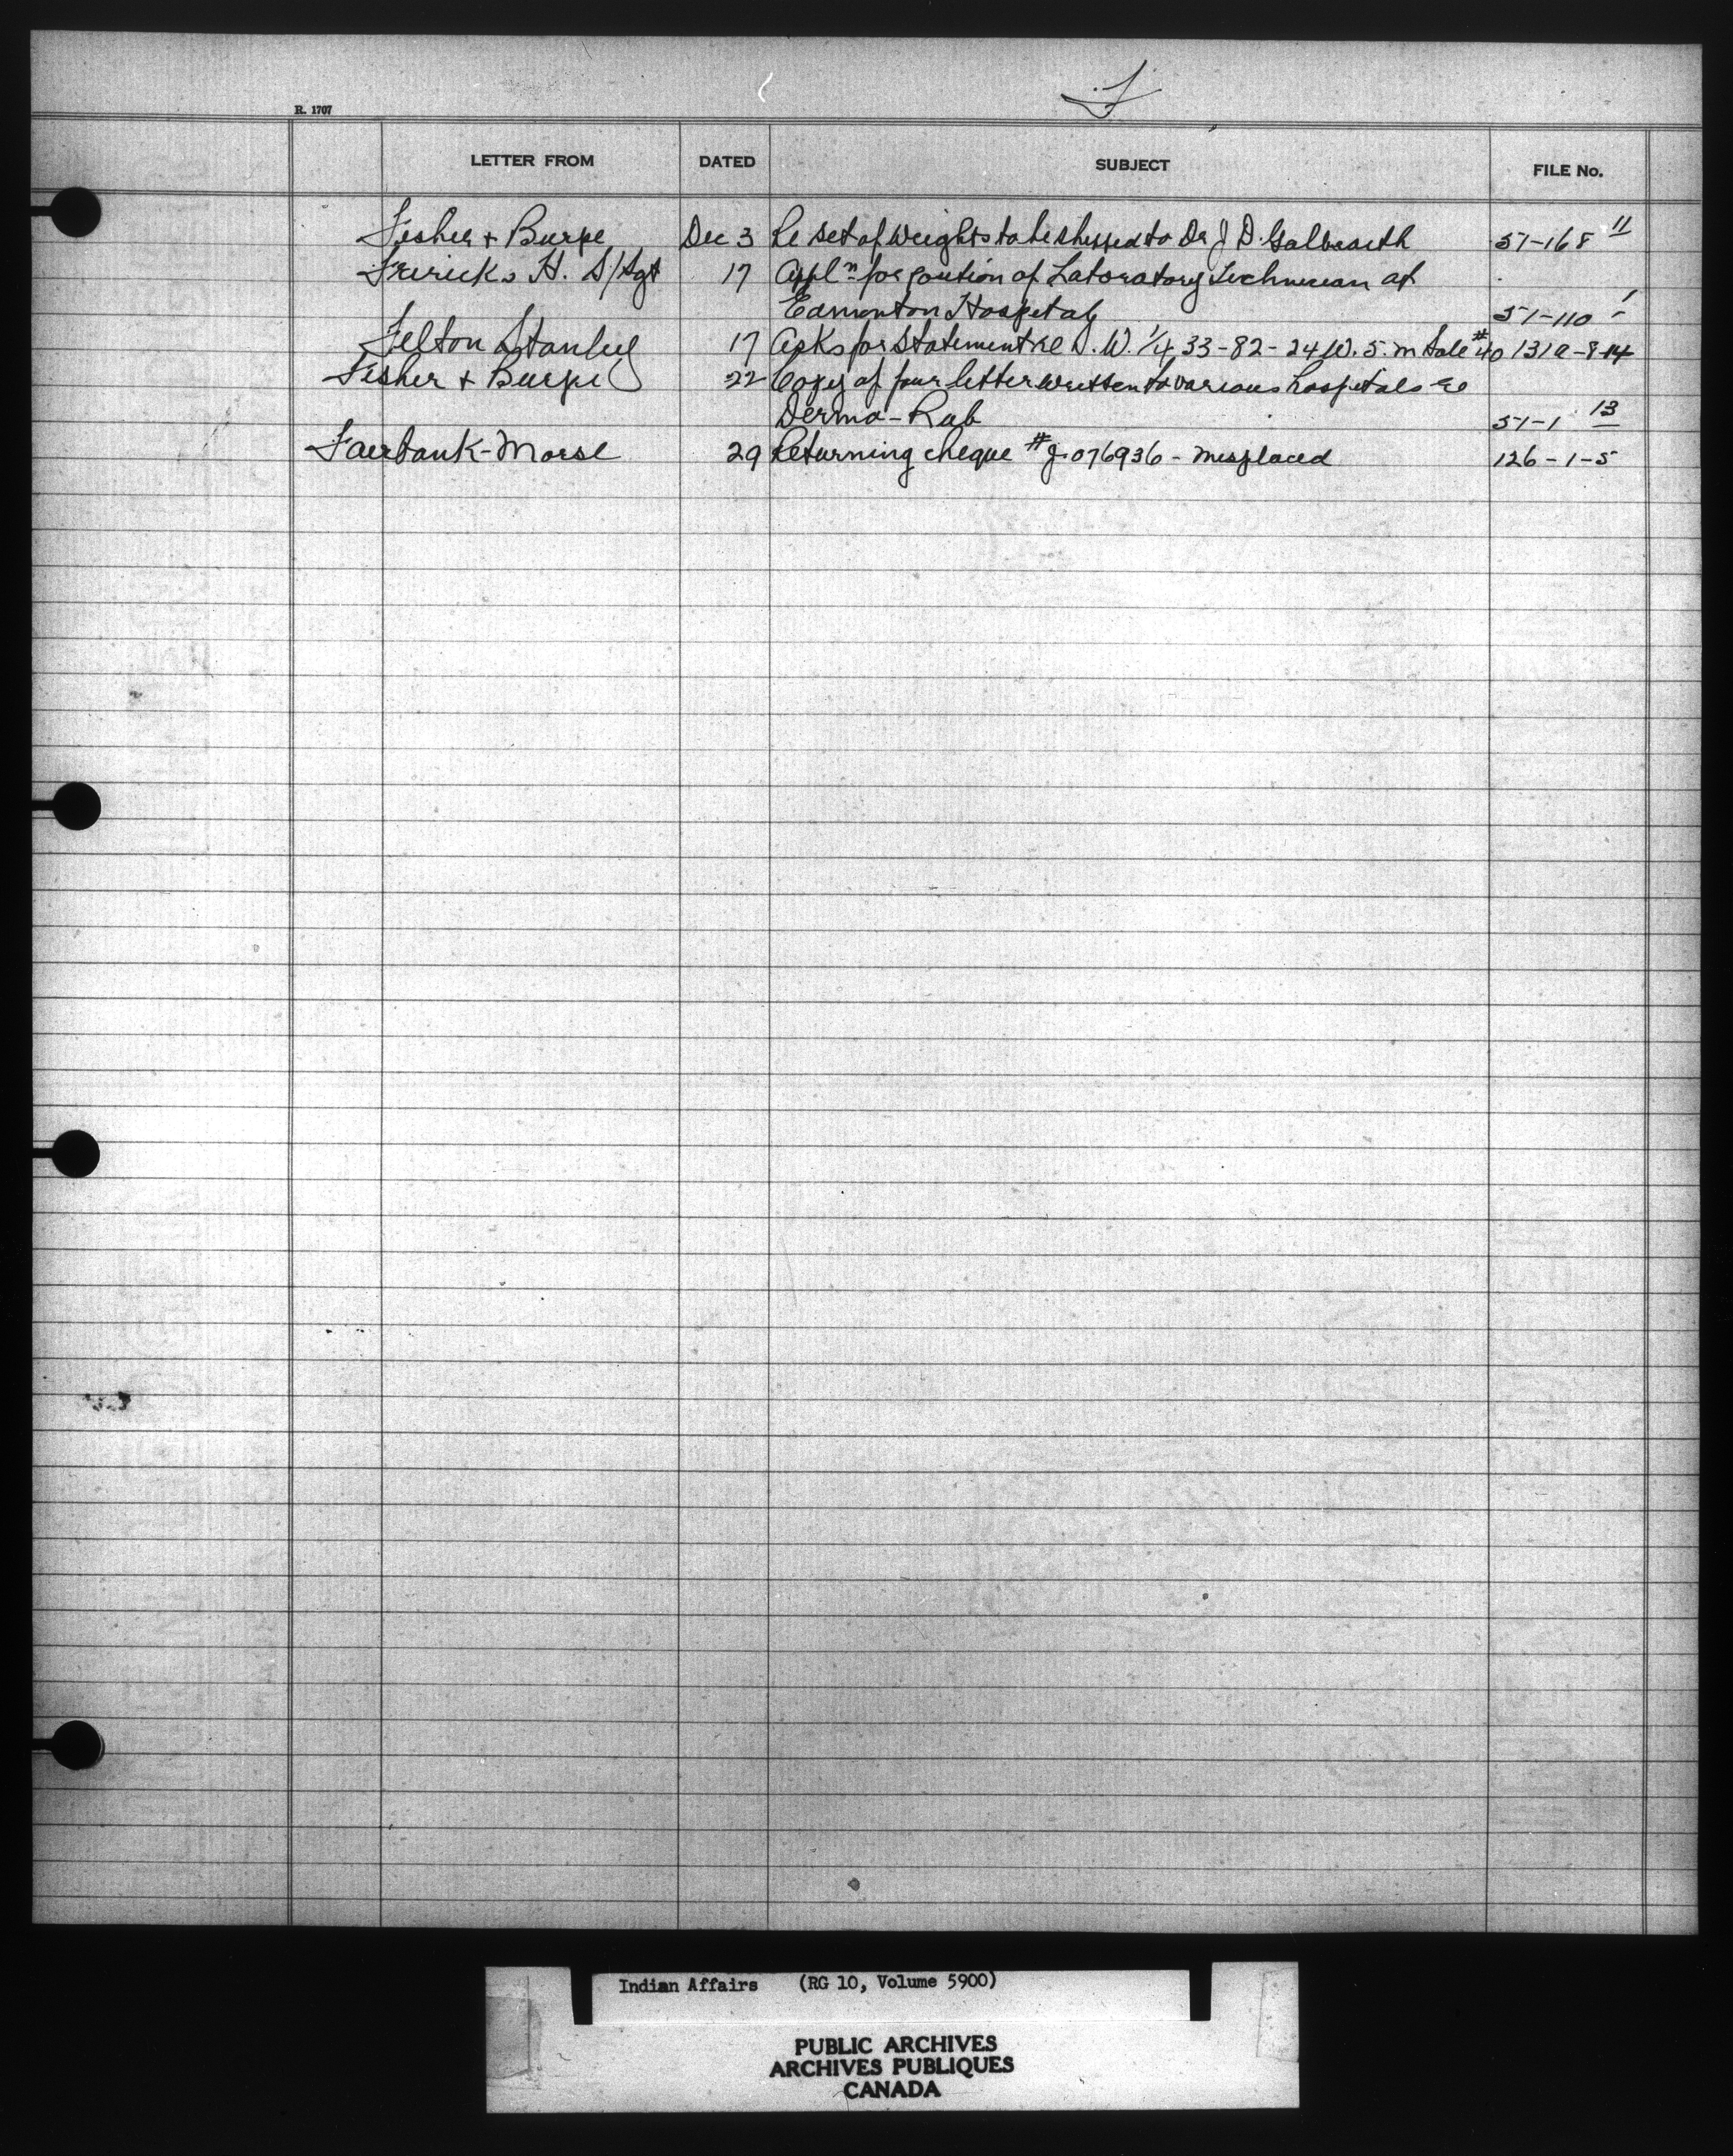 F
R. 1707
LETTER FROM DATED SUBJECT FILE No.
Fisher + Burpe Dec 3 Re set of Weights to be shipped to Dr J D. Galbraith 57-168 11
H. S/Sgt 17 Appl'n for position of Laboratory Technician at
Edmonton Hospital 57-110 1
Felton Stanley 17 Asks for Statement re S. W. 1/4 33-82-24 W. 5. m Sale #40 131a-8-14
Fisher + Burpe 22 Copy of four letter written to various hospitals re
Derma-Rub 57-1 13
Fairbank-Morse 29 Returning cheque # J-076936 - misplaced 126-1-5
Indian Affairs (RG 10, Volume 5900)
PUBLIC ARCHIVES
ARCHIVES PUBLIQUES
CANADA